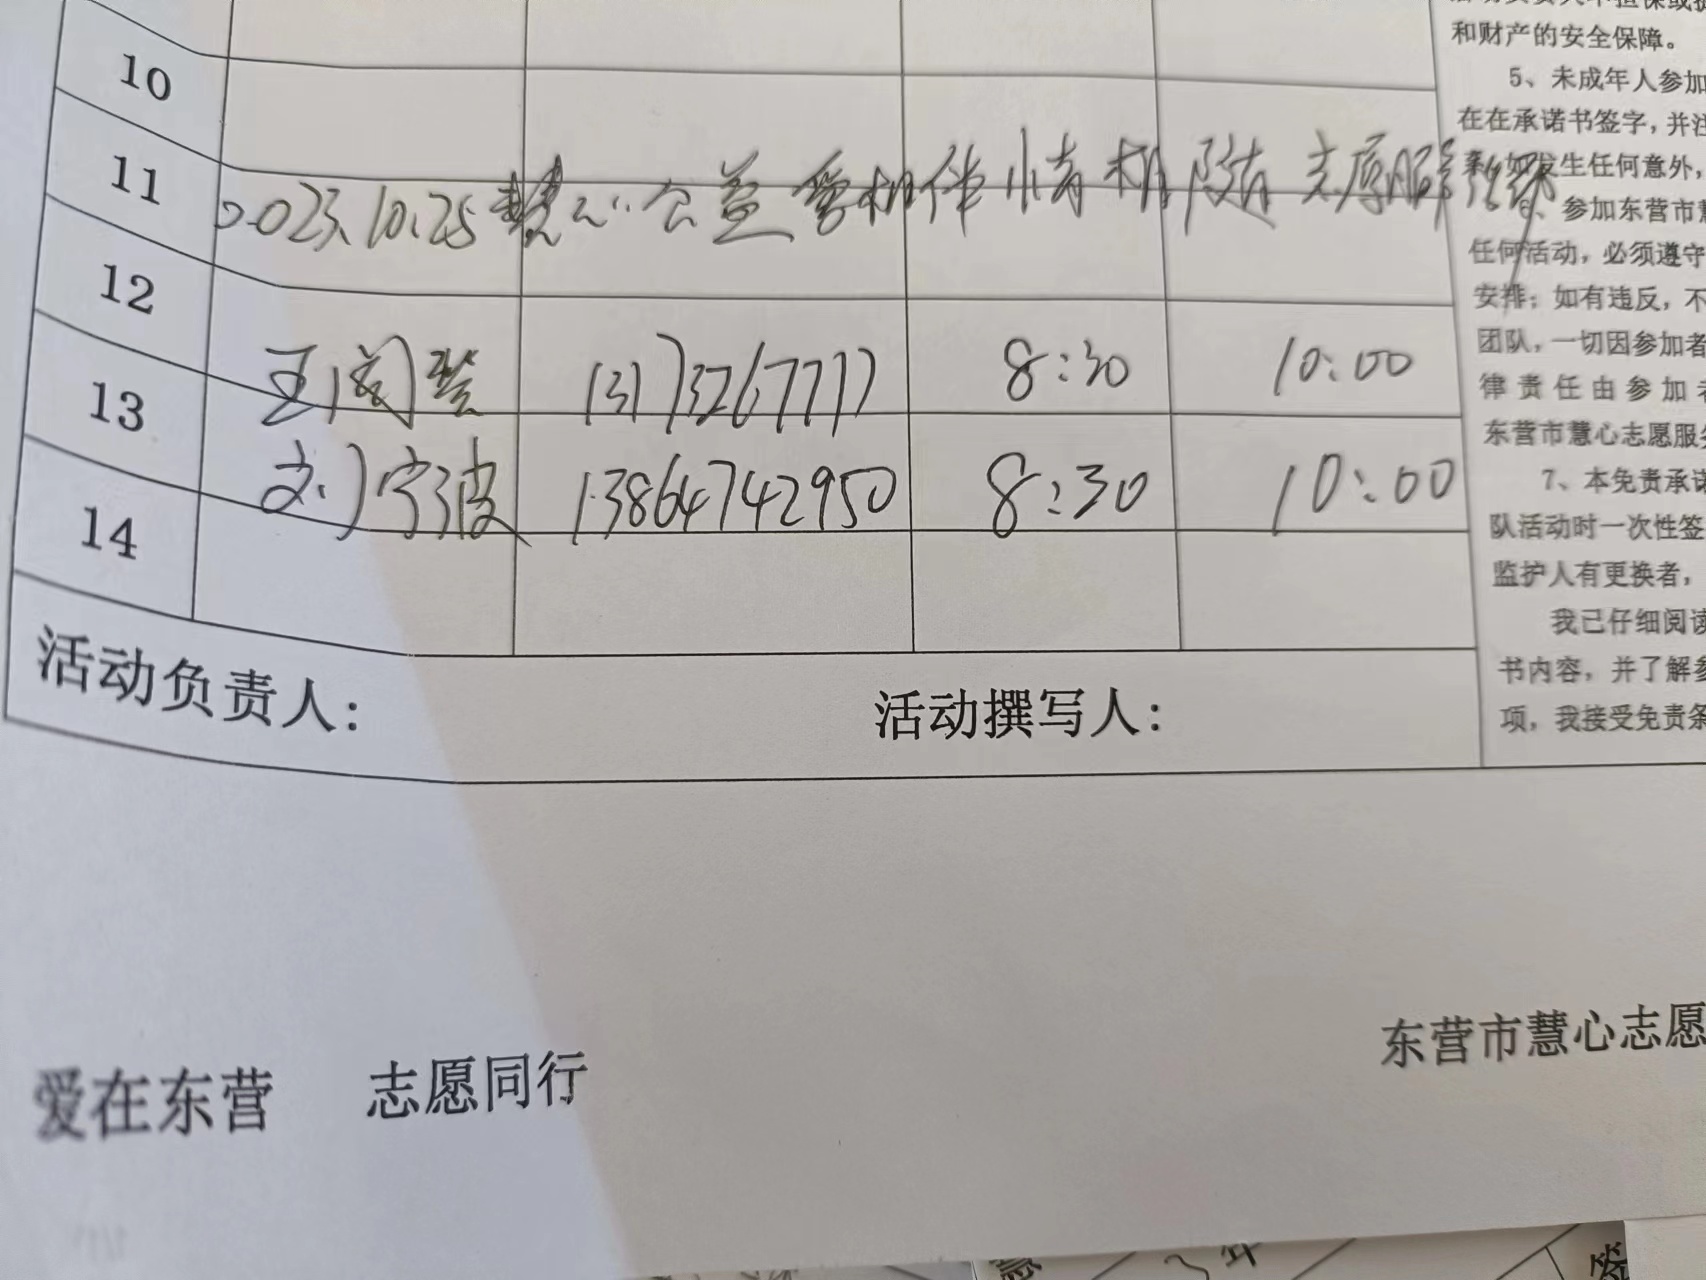 10
11
2023.10.25 慧心公益 爱相伴 情相随 志愿服务活动
12
13 王闵 13173267717 8:30 10:00
14 刘宁波 13864742950 8:30 10:00
活动负责人： 活动撰写人：
和财产的安全保障。
5、未成年人参加
在在承诺书签字，并注
如发生任何意外，
、参加东营市慧
任何活动，必须遵守
安排；如有违反，不
团队，一切因参加者
律责任由参加者
东营市慧心志愿服务
7、本免责承诺
队活动时一次性签
监护人有更换者，
我已仔细阅读
书内容，并了解参
项，我接受免责条
爱在东营 志愿同行
东营市慧心志愿